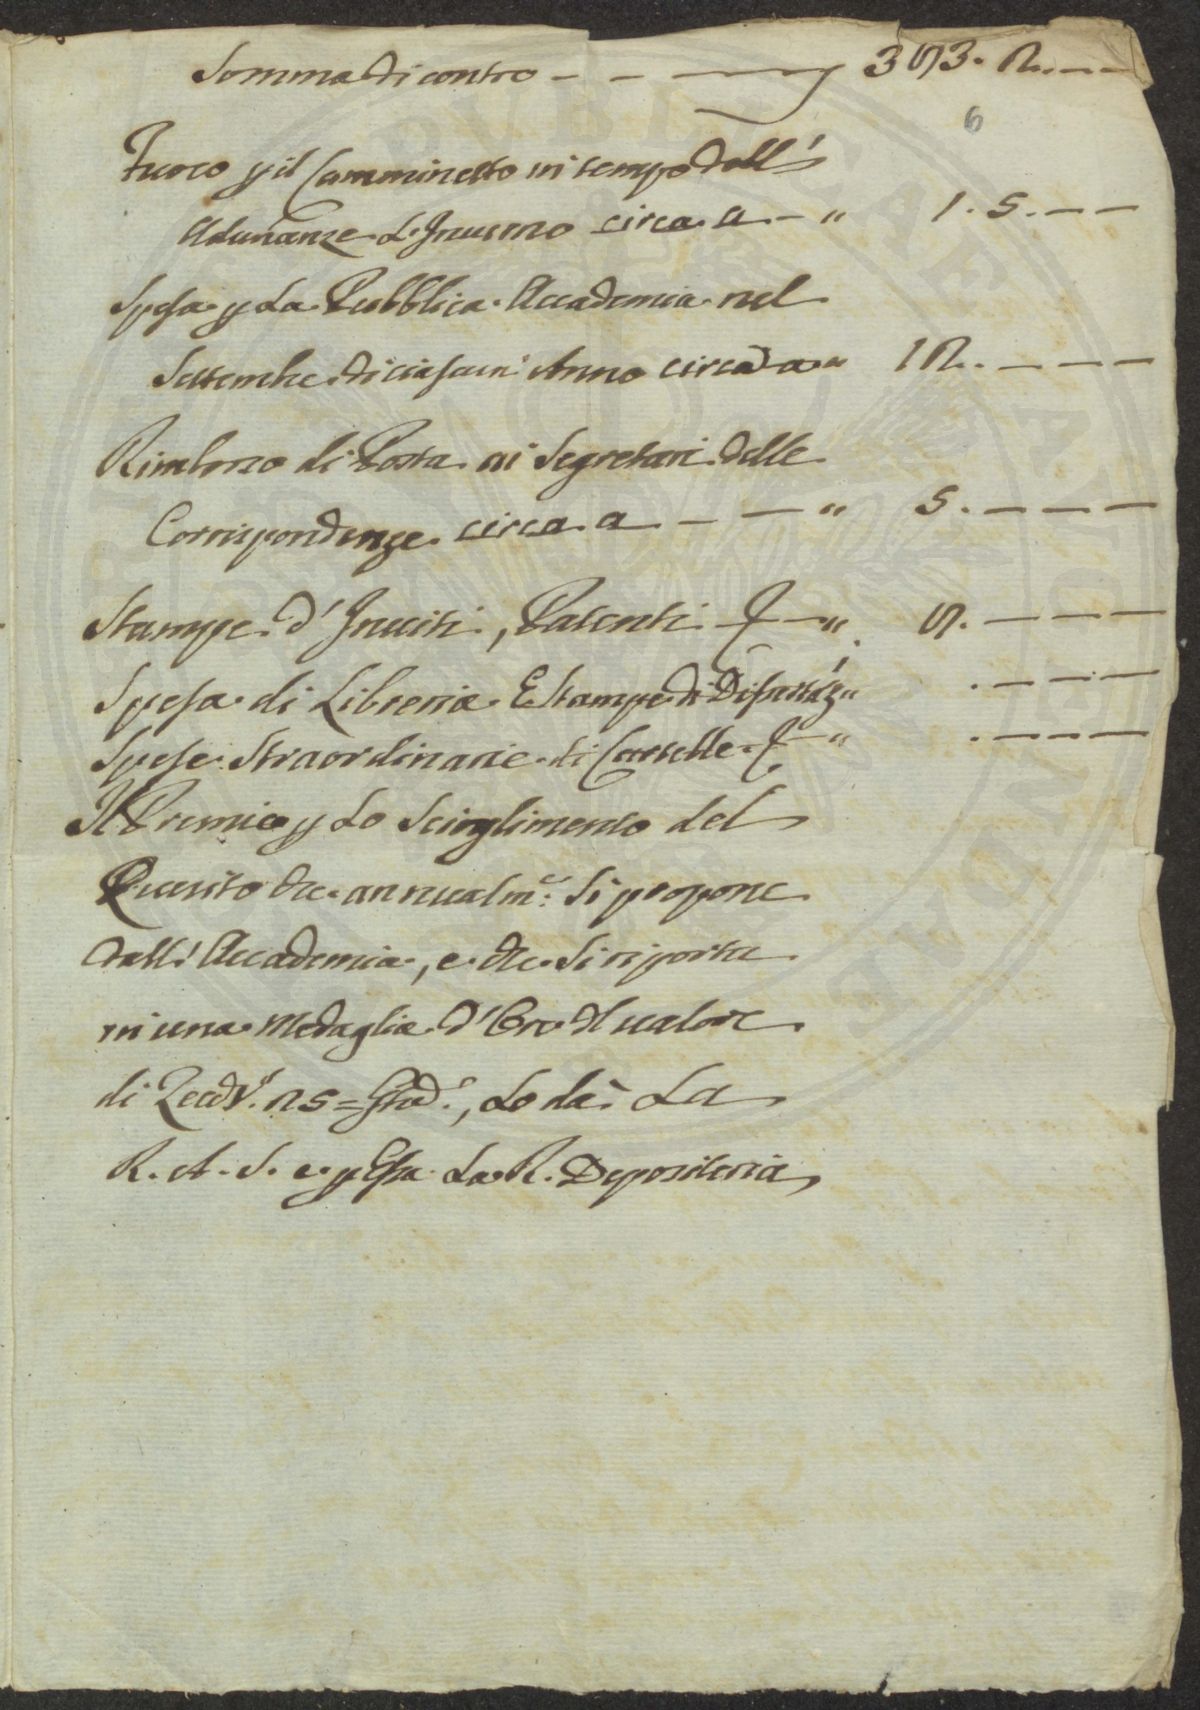 Somma di contro - - — y 393. 2. - -
6
Fuoco p il Camminetto in tempo dell'
Adunanze d'Inverno circa a - " 1. 5. - -
Spesa p La Pubblica Accademia nel
Settembre di ciascun' Anno circa a " 12. - - -
Rimborso di Posta ai Segretari delle
Corrispondenze circa a - - " 5. - - -
Stampe d'Inviti, Patenti & - " 9. - - -
Spesa di Libreria E Stampe di Dissertaz: " . - - -
Spese Straordinarie di Cartelle & - " . - - -
Il Premio p Lo Scioglimento del
Quesito che annualm.e: Si propone
dall'Accademia, e che Si riporta
in una Medaglia d'Oro del valore
di Zecch. 25 = , Lo dà La
R. A. S. e p Essa La R. Depositeria